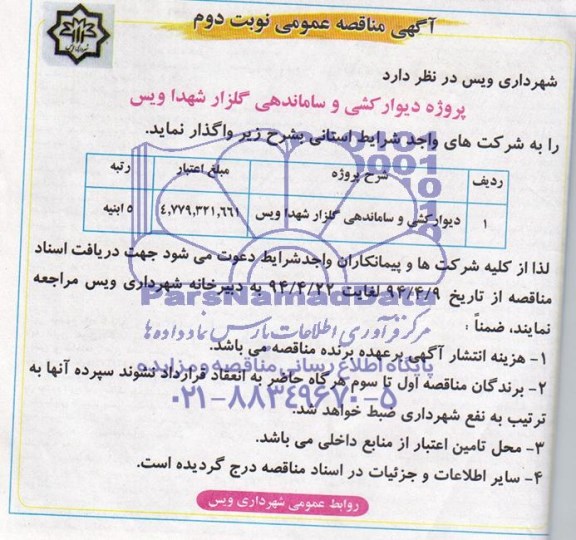 آگهی مناقصه عمومی نوبت دوم
شهرداری ویس در نظر دارد
پروژه دیوار کشی و ساماندهی گلزار شهدا ویس
را به شرکت های واجد شرایط استانی بشرح زیر واگذار نماید.
ردیف شرح پروژه مبلغ اعتبار رتبه
۱ دیوار کشی و ساماندهی گلزار شهدا ویس ۴,۷۷۹,۳۲۱,۶۶۱ ۵ ابنیه
لذا از کلیه شرکت ها و پیمانکاران واجدشرایط دعوت می شود جهت دریافت اسناد
مناقصه از تاریخ ۹۴/۴/۹ لغایت ۹۴/۴/۲۲ به دبیرخانه شهرداری ویس مراجعه
نمایند، ضمناً :
۱- هزینه انتشار آگهی برعهده برنده مناقصه می باشد.
۲- برندگان مناقصه اول تا سوم هرگاه حاضر به انعقاد قرارداد نشوند سپرده آنها به
ترتیب به نفع شهرداری ضبط خواهد شد.
۳- محل تامین اعتبار از منابع داخلی می باشد.
۴- سایر اطلاعات و جزئیات در اسناد مناقصه درج گردیده است.
روابط عمومی شهرداری ویس
ParsNamadData
مرکز فرآوری اطلاعات پارس نماد داده ها
پایگاه اطلاع رسانی مناقصه و مزایده
۰۲۱-۸۸۳۴۹۶۷۰-۵